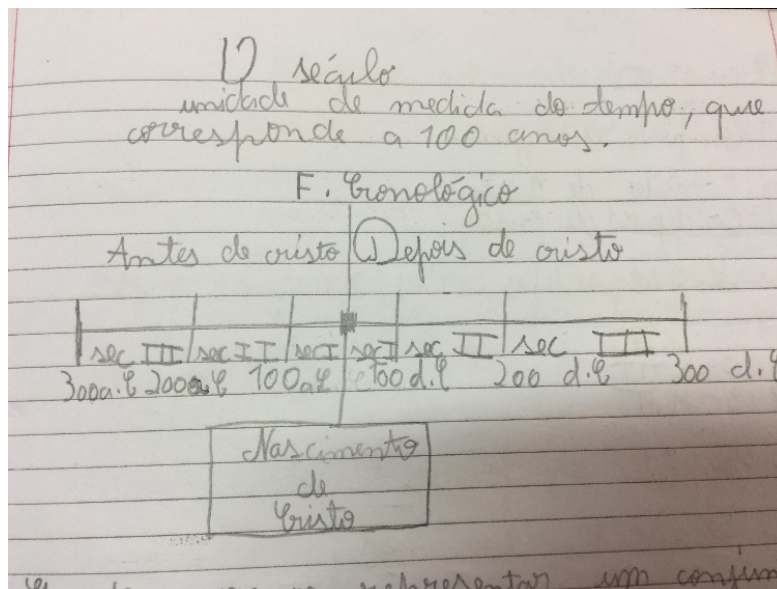 1) século
unidade de medida do tempo, que
corresponde a 100 anos.
F. Cronológico
Antes de cristo Depois de cristo
sec III sec II sec I sec I sec II sec III
300a.C 200a.C 100a.C 100 d.C 200 d.C 300 d.C
Nascimento
de
Cristo
representar um